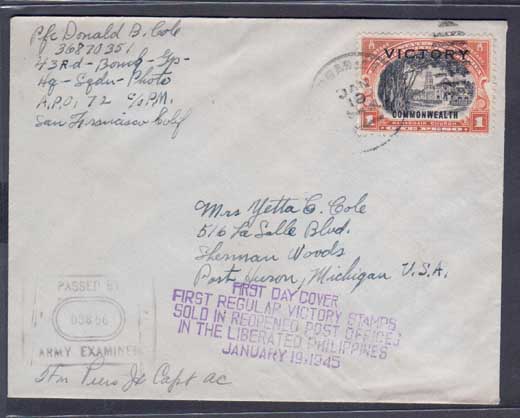 Pfc Donald B. Cole
36870351
43rd-Bomb-Gp-
Hq-Sqdn-Photo
A.P.O. 72 c/o P.M.
San Francisco Calif
VICTORY
COMMONWEALTH
1 1
JAN
19
Mrs Yetta C. Cole
516 La Salle Blvd.
Sherman Woods
Port Huron, Michigan U.S.A.
FIRST DAY COVER
FIRST REGULAR VICTORY STAMPS
SOLD IN REOPENED POST OFFICES
IN THE LIBERATED PHILIPPINES
JANUARY 19, 1945
PASSED BY
ARMY EXAMINER
Capt AC